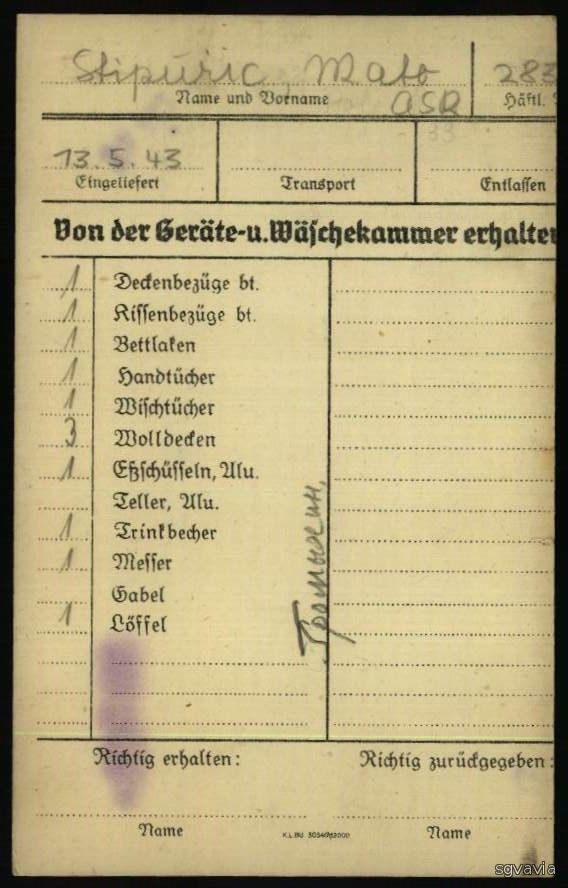 Stipuric, Mato 283
Name und Vorname ASR Häftl.
13.5.43
Eingeliefert Transport Entlassen
Von der Geräte-u. Wäschekammer erhalten
1 Deckenbezüge bt.
1 Kissenbezüge bt.
1 Bettlaken
1 Handtücher
1 Wischtücher
3 Wolldecken
1 Eßschüsseln, Alu.
Teller, Alu.
1 Trinkbecher
1 Messer
Gabel
1 Löffel
Richtig erhalten: Richtig zurückgegeben:
Name K.L.BU Name
sgvavia